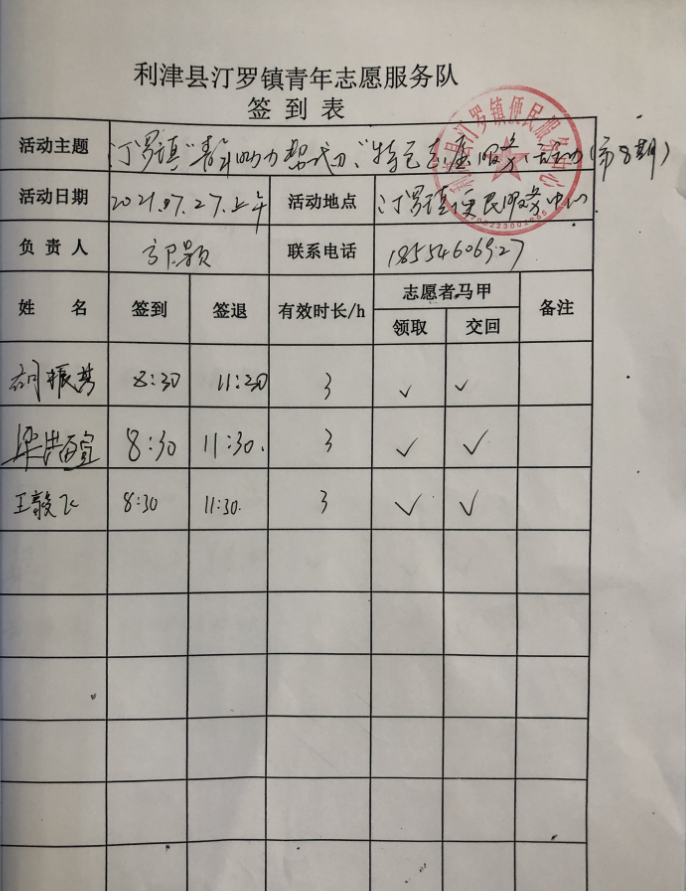 利津县汀罗镇青年志愿服务队
签到表
活动主题 汀罗镇"青年助力帮代办"特色志愿服务活动(第8期)
活动日期 2021.07.27.上午 活动地点 汀罗镇便民服务中心
负责人 联系电话 18554606927
姓名 签到 签退 有效时长/h 志愿者马甲 备注
领取 交回
胡振梦 8:30 11:30 3 ✓ ✓
梁浩宣 8:30 11:30. 3 ✓ ✓
王毅飞 8:30 11:30. 3 ✓ ✓
利津县汀罗镇便民服务中心